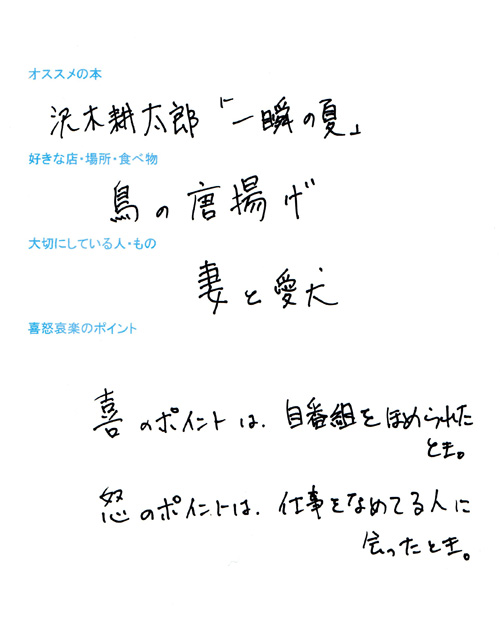 オススメの本
沢木耕太郎「一瞬の夏」
好きな店・場所・食べ物
鳥の唐揚げ
大切にしている人・もの
妻と愛犬
喜怒哀楽のポイント
喜のポイントは、自番組をほめられた
とき。
怒のポイントは、仕事をなめてる人に
会ったとき。